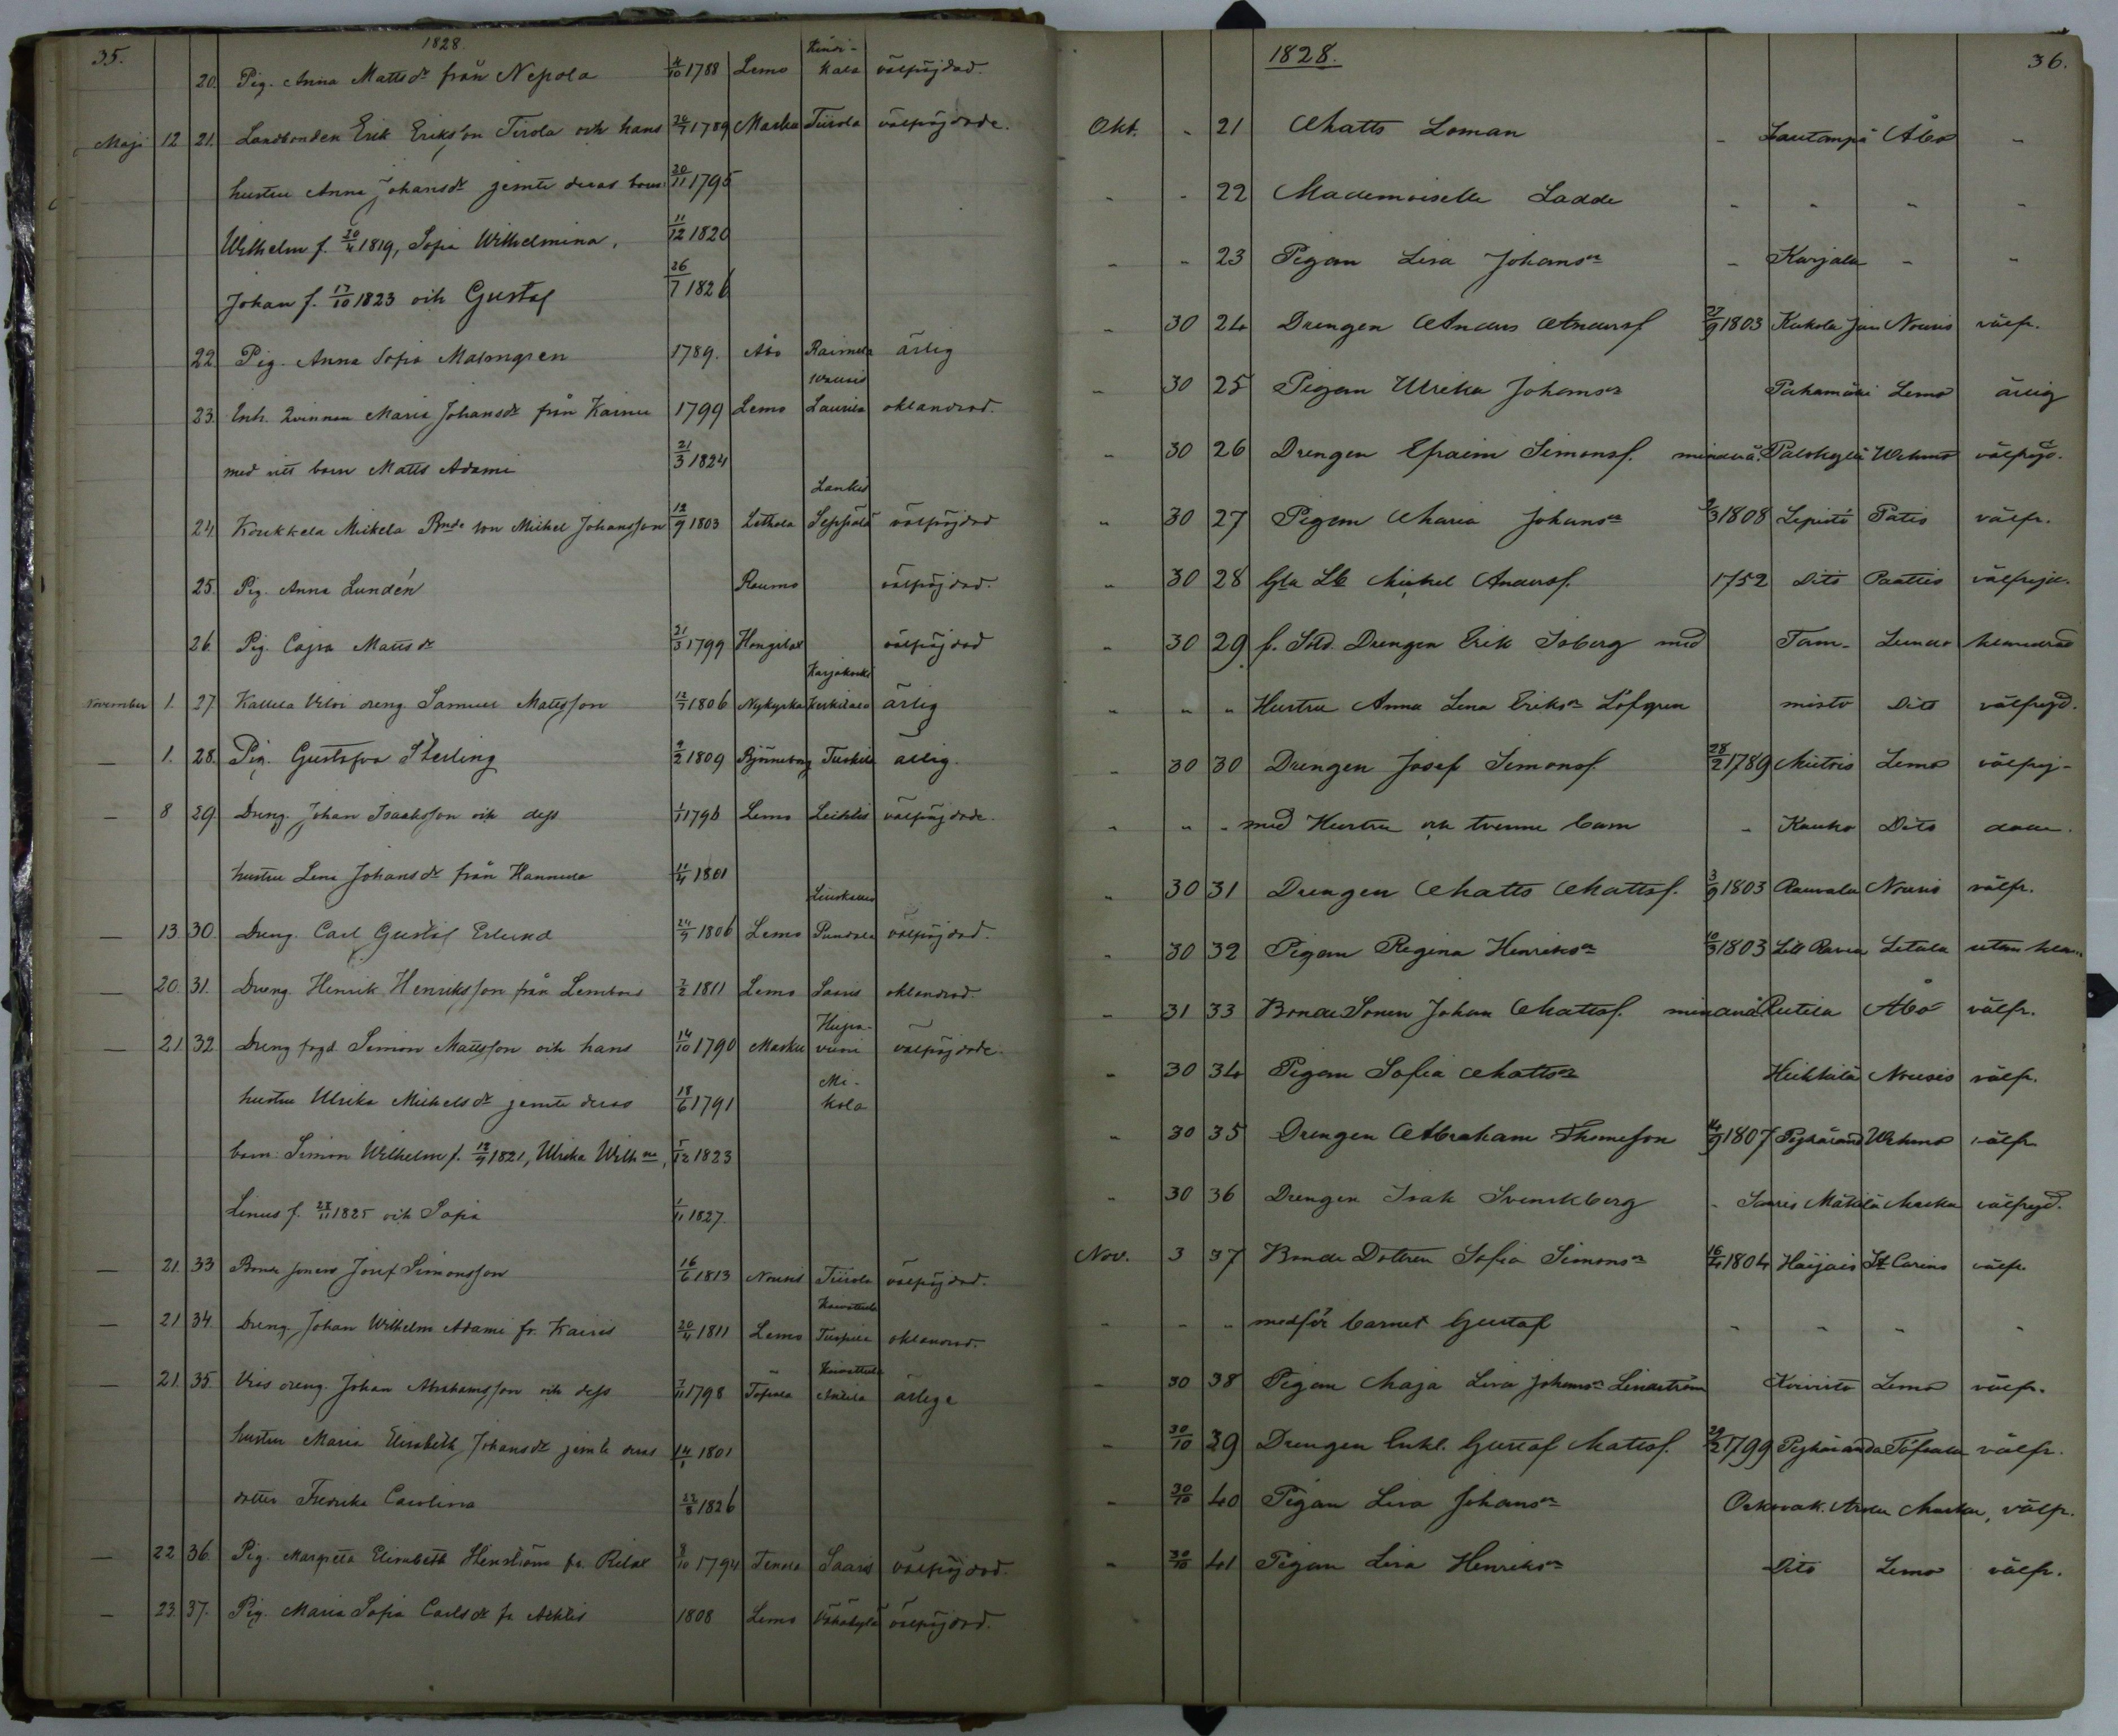 35.
1828.
20. Pig. Anna Mattsdr från Nepola 4/10 1788 Lemo kala välfrejdad.
Maji 12 21. Landbonden Erik Eriksson Tirola och hans 26/7 1789 Masku Tiirola välfrejdade.
hustru Anna Johansdr jemte deras barn: 30/11 1795
Wilhelm f. 20/4 1819, Sofia Wilhelmina, 11/12 1820
Johan f. 17/10 1823 och Gustaf 26/7 1826
22. Pig. Anna Sofia Malmgren 1789. Åbo Raimela ärlig
23. Inh. Qvinnan Maria Johansdr från Kainu 1799 Lemo Laurila oklandrad.
med sitt barn Matts Adami 21/3 1824
24. Koukkela Mickela Bnde son Michel Johansson 12/9 1803 Lethala Seppälä välfrejdad
25. Pig. Anna Lundén Raumo välfrejdad.
26. Pig. Cajsa Mattsdr 21/3 1799 Hongilax välfrejdad
November 1. 27. Kallela dreng Samuel Mattsson 12/7 1806 Nykyrka ärlig
— 1. 28. Pig. Gustafva Sterling 9/2 1809 Björneborg ärlig.
— 8 29. Dreng. Johan Isaaksson och dess 1/1 1796 Lemo Leikkis välfrejdade.
hustru Lena Johansdr från Hannula 11/4 1801
— 13. 30. Dreng. Carl Gustaf Erlund 24/9 1806 Lemo välfrejdad.
— 20. 31. Dreng Henrik Henriksson från Lembois 7/2 1811 Lemo Saaris oklandrad.
— 21 32 Dreng fogd. Simon Mattsson och hans 14/10 1790 Masku välfrejdade.
hustru Ulrika Michelsdr jemte deras 18/6 1791 Mi-kola
barn: Simon Wilhelm f. 1821, Ulrika Wilhna, 5/12 1823
Linus f. 1825 och Sofia 1/11 1827.
— 21. 33 Bonde sonen Josef Simonsson 16/6 1813 Nousis Tiirola välfrejdad.
— 21 34. Dreng. Johan Wilhelm Adami fr. Kairis 20/4 1811 Lemo oklandrad.
— 21. 35. dreng. Johan Abrahamsson och dess 7/11 1798 Töfsala Anttila ärlige
hustru Maria Elisabeth Johansdr jemte deras 14/1 1801
dotter Fredrika Carolina 22/8 1826
— 22 36. Pig. Margreta Elisabeth Henström fr. Rilax 8/10 1794 Tenala Saaris välfrejdad.
— 23. 37. Pig. Maria Sofia Carlsdr fr 1808 Lemo Vähäkylä välfrejdad.
36.
1828.
Okt. „ 21 Matts Loman – Lautanpä Åbo –
„ „ 22 Mademoiselle Ladde – – – –
„ „ 23 Pigan Lisa Johansdr – Karjala – –
„ 30 24 Drengen Anders Andersf. 27/9 1803 Kukola Nousis välfr.
„ 30 25 Pigan Ulrika Johansdr Pahamäki Lemo ärlig
„ 30 26 Drengen Efraim Simonsf. Palokylä Wehmo välfrejd.
„ 30 27 Pigan Maria Johansdr 1808 Lepistö Patis välfr.
„ 30 28 Gla Lb Michel Andersf. 1752 Dito Paattis välfrejd.
„ 30 29. f. Sold. Drengen Erik Isberg med Tam- Lundo
„ „ „ Hustru Anna Lena Eriksdr Löfgren misto Dito välfrejd.
„ 30 30 Drengen Josef Simonsf. 28/2 1789 Lemo välfrej-
„ „ „ med Hustru och tvenne barn – Kauko Dito dade.
„ 30 31 Drengen Matts Mattsf. 3/9 1803 Rauvala Nousis välfr.
„ 30 32 Pigan Regina Henriksdr 10/3 1803 Letala utan
„ 31 33 Bonde Sonen Johan Mattsf. Åbo välfr.
„ 30 34 Pigan Sofia Mattsdr Heikkilä Nousis välfr.
„ 30 35 Drengen Abraham Thomesson 1807 Wehmo välfr.
„ 30 36 Drengen Isak Svenskberg – Saaris Mäkilä Masku välfrejd.
Nov. 3 37 Bonde Dottren Sofia Simonsdr 16/4 1804 Häijäis St Carins välfr.
„ „ „ medför barnet Gustaf – – – –
„ 30 38 Pigan Maja Lisa Johansdr Lindström Koivisto Lemo välfr.
„ 30/10 39 Drengen Enkl. Gustaf Mattsf. 29/2 1799 Töfsala välfr.
„ 30/10 40 Pigan Lisa Johansdr Masku, välfr.
„ 30/10 41 Pigan Lisa Henriksdr Dito Lemo välfr.